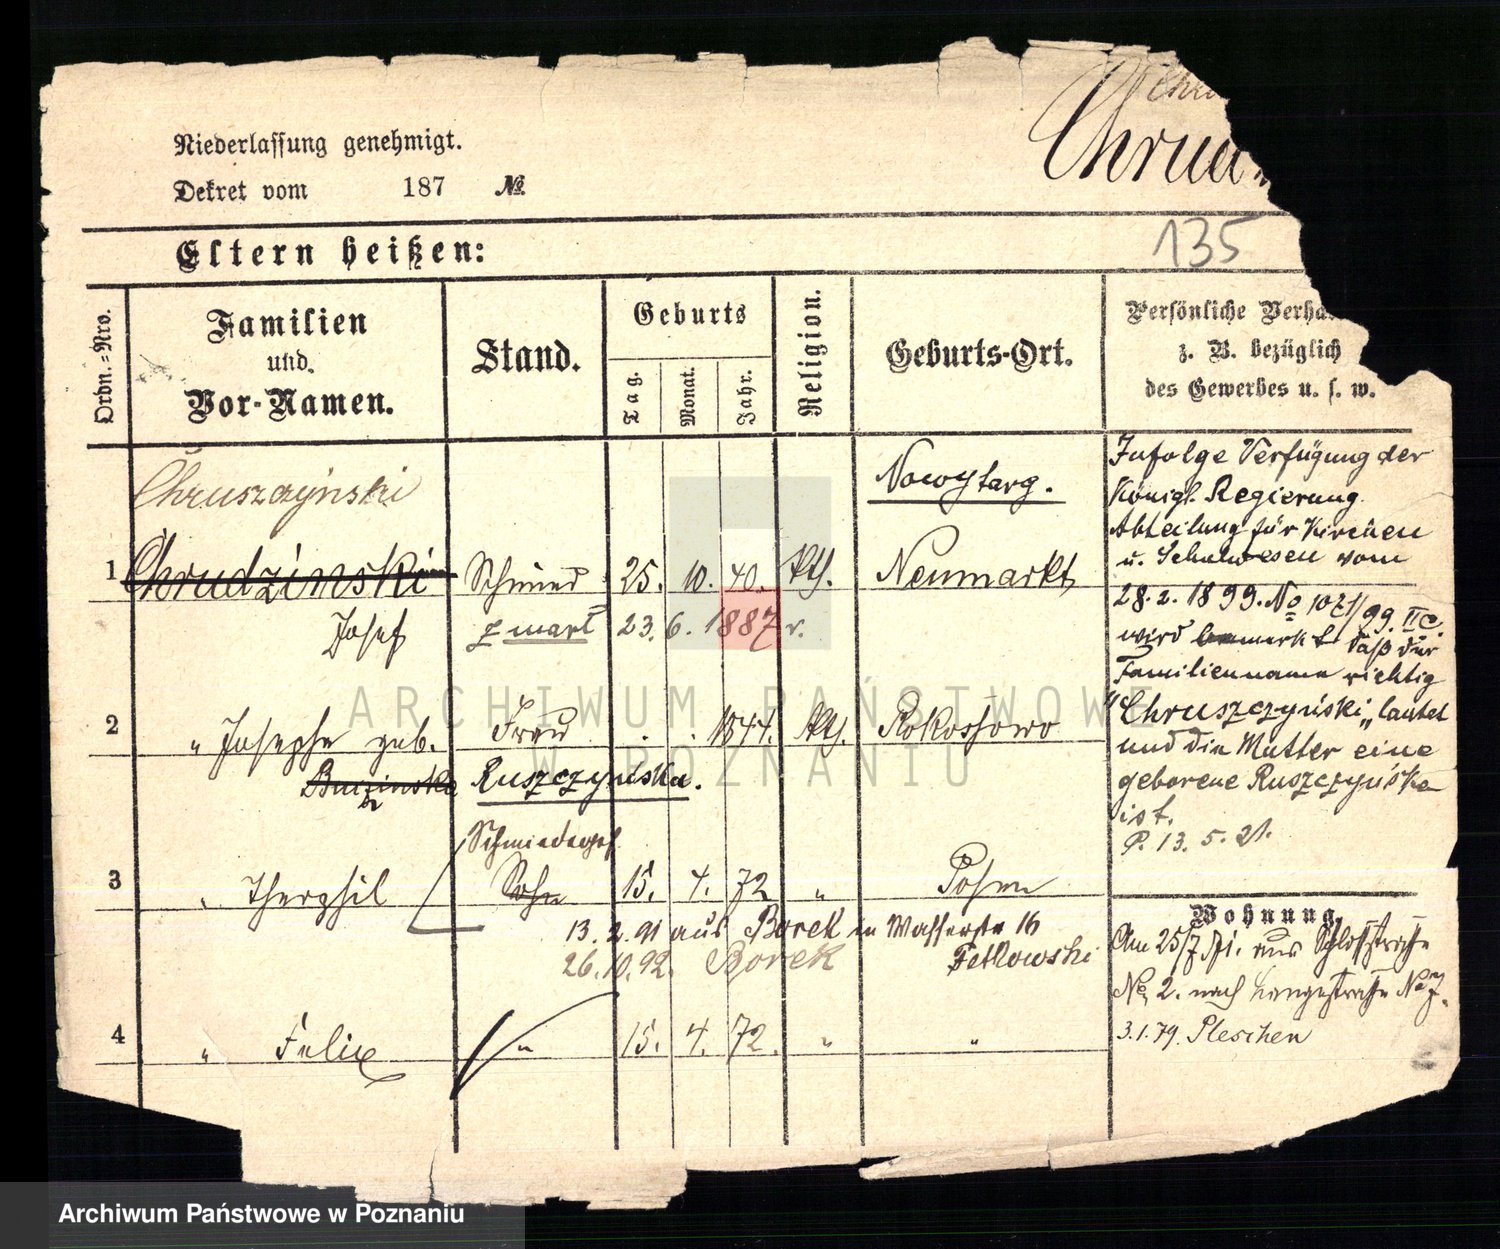 Niederlassung genehmigt.
Dekret vom 187 №
Chru
Chrud
135
Eltern heißen:
Ordn.=Nro.
Familien
und
Vor-Namen.
Stand.
Geburts
Tag.
Monat.
Jahr.
Religion.
Geburts-Ort.
Persönliche Verha
z. B. bezüglich
des Gewerbes u. s. w.
Chruszczyński
Nowytarg.
1 Chrudzinski Schmied 25. 10. 40. kth. Neumarkt
Josef zmarł 23. 6. 1887 r.
2 " Josepha geb. Frau . . 1844. kth. Rokossowo
Ruszczyńska.
Schmiedeges.
3 " Theophil Sohn 15. 4. 72 " Posen
13. 2. 91 aus Borek in Wasserstr 16
26. 10. 92. Borek Fetkowski
4 " Felix " 15. 4. 72. " "
Infolge Verfügung der
Königl. Regierung
Abteilung für Kirchen
u. Schulwesen vom
28. 2. 1899. No 1071/99 IIC.
wird bemerkt daß der
Familienname richtig
"Chruszczyński" lautet
und die Mutter eine
geborene Ruszczyńska
ist.
P. 13. 5. 21.
Wohnung
Am 25/7 71. aus Schloßstraße
No 2. nach Langestraße No 7.
3. 1. 79. Pleschen
ARCHIWUM PAŃSTWOWE
W POZNANIU
Archiwum Państwowe w Poznaniu